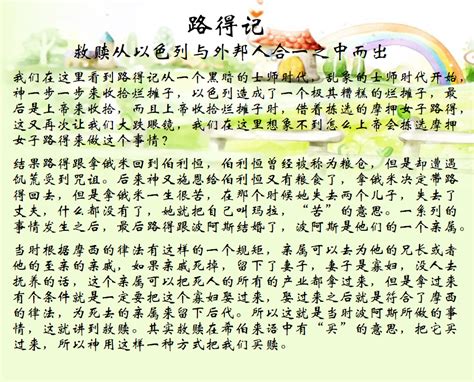 路得记
救赎从以色列与外邦人合一之中而出
我们在这里看到路得记从一个黑暗的士师时代，乱象的士师时代开始，
神一步一步来收拾烂摊子，以色列造成了一个极其糟糕的烂摊子，最
后是上帝来收拾，而且上帝收拾烂摊子时，借着拣选的摩押女子路得，
这又再次让我们大跌眼镜，我们在这里想象不到怎么上帝会拣选摩押
女子路得来做这个事情？
结果路得跟拿俄米回到伯利恒，伯利恒曾经被称为粮仓，但是却遭遇
饥荒受到咒诅。后来神又施恩给伯利恒又有粮食了，拿俄米决定带路
得回去，但是拿俄米一生很苦，在那个时候她失去两个儿子，失去了
丈夫，什么都没有了，她就把自己叫玛拉，“苦”的意思。一系列的
事情发生之后，最后路得跟波阿斯结婚了，波阿斯是他们的一个亲属。
当时根据摩西的律法有这样的一个规矩，亲属可以去为他的兄长或者
他的至亲的亲戚，如果亲戚死掉，留下了妻子，妻子是寡妇，没人去
抚养的话，这个亲属可以把死人的所有的产业都拿过来，但是拿过来
有个条件就是一定要把这个寡妇娶过来，娶过来之后就是符合了摩西
的律法，为死去的亲属来留下后代。所以这就是当时波阿斯所做的事
情，这就讲到救赎。其实救赎在希伯来语中有“买”的意思，把它买
过来，所以神用这样一种方式把我们买赎。